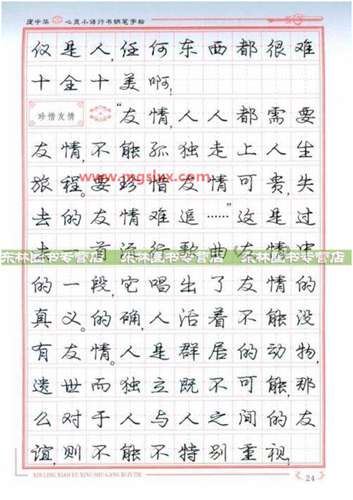 庞中华 心灵小语行书钢笔字帖
仅是人,任何东西都很难
十全十美啊!
珍惜友情 “友情,人人都需要
友情,不能孤独走上人生
旅程。要珍惜友情可贵,失
去的友情难追……”这是过
去一首流行歌曲《友情》中
东林图书专营店 东林图书专营店 东林图书专营店
的一段,它唱出了友情的
真义。的确,人活着不能没
有友情。人是群居的动物,
遗世而独立既不可能,那
么对于人与人之间的友
谊,则不能不特别重视,
24